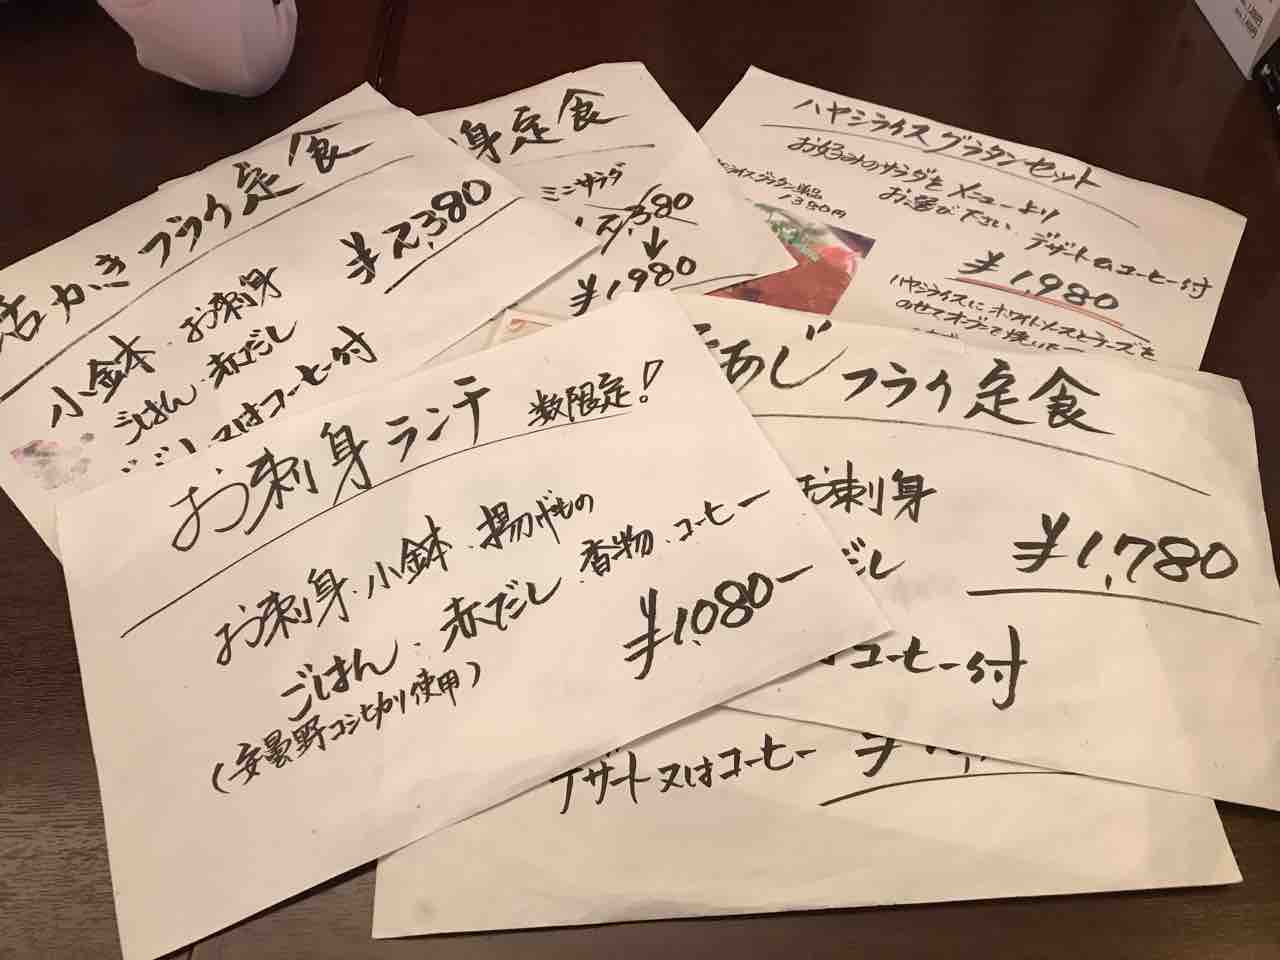 活かきフライ定食
¥2,380
小鉢・お刺身
ごはん・赤だし
又はコーヒー付
身定食
ミニサラダ
2,380
↓
¥1980
ハヤシライスグラタンセット
お好みのサラダをメニューより
お選び下さい、デザートorコーヒー付
ハヤシライスグラタン単品
1380円
¥1,980
ハヤシライスに、ホワイトソースとチーズを
のせてオーブンで焼いた
お刺身ランチ 数限定!
お刺身・小鉢・揚げもの
ごはん・赤だし・香物・コーヒー
(安曇野コシヒカリ使用)
¥1,080ー
あじフライ定食
お刺身
¥1,780
だし
コーヒー付
デザート又はコーヒー